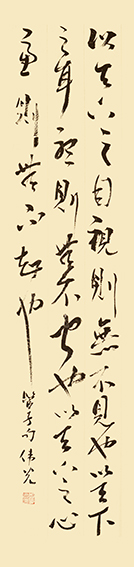 以天下之目視則無不見也以天下
之耳聽則無不聞也以天下之心
慮則無不知也
管子句偉光